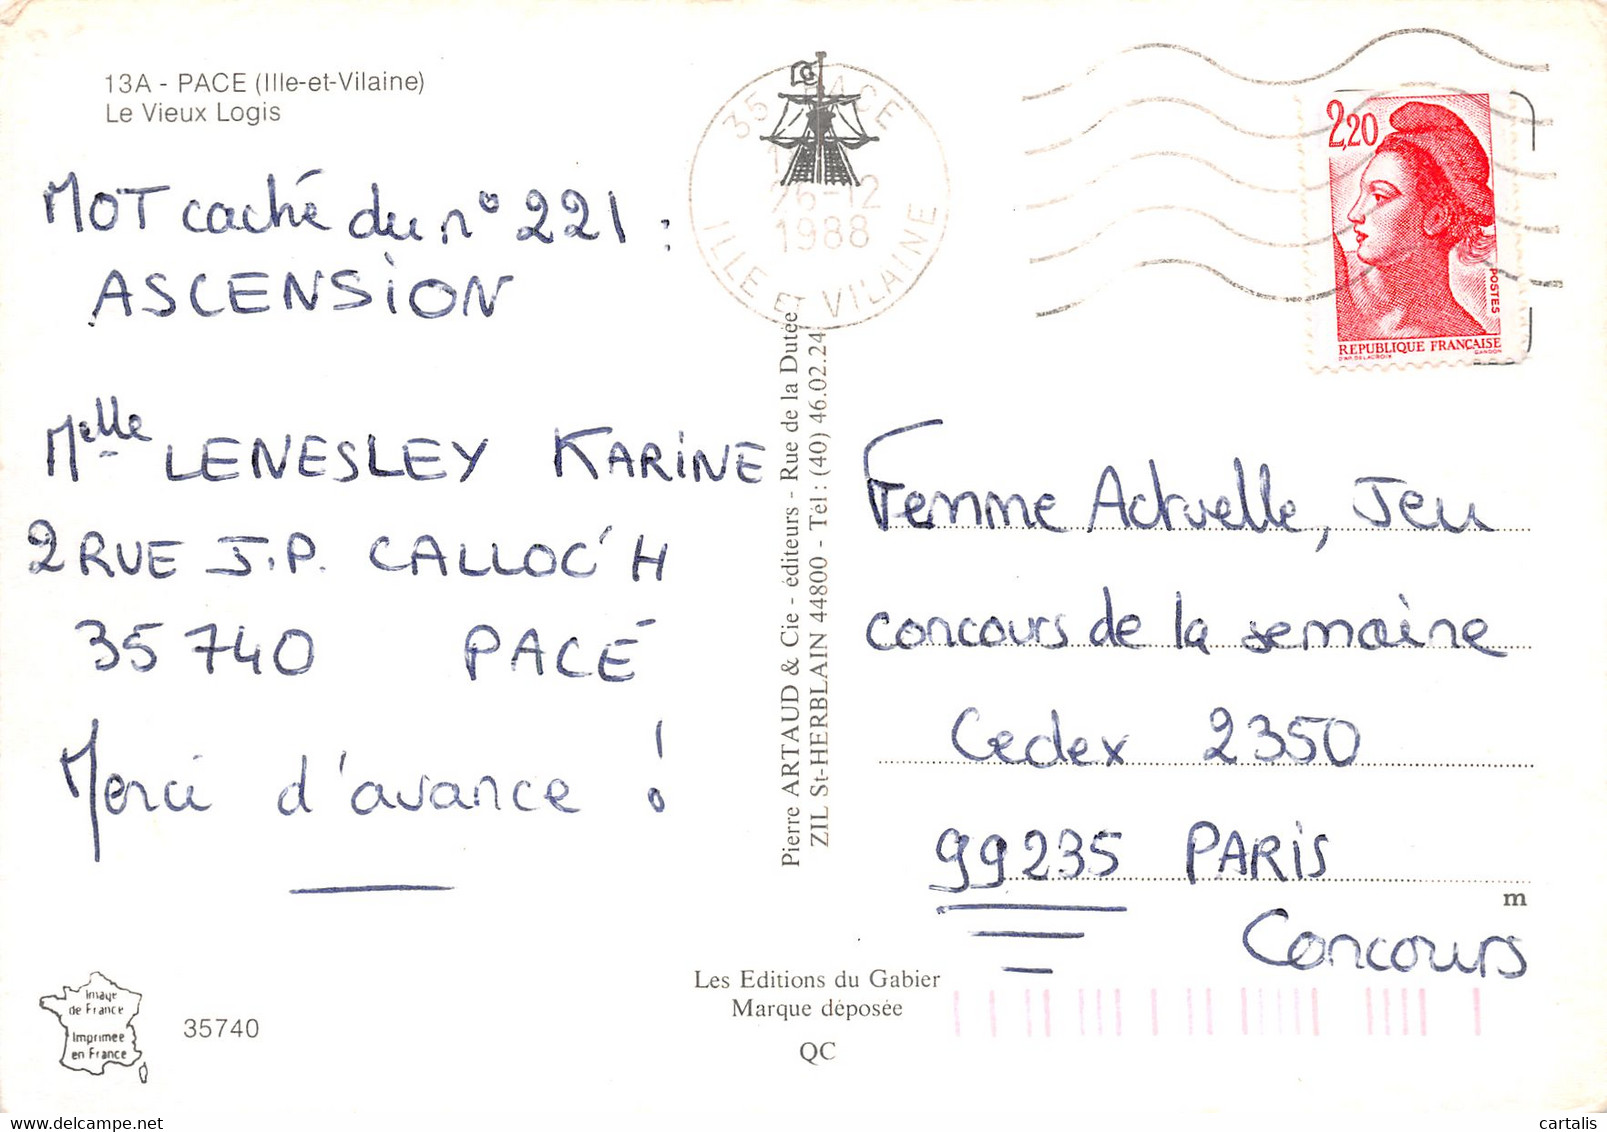 13A - PACE (Ille-et-Vilaine)
Le Vieux Logis
MOT caché du n° 221 :
ASCENSION
Melle LENESLEY KARINE
2 RUE J.P. CALLOC'H
35740 PACÉ
Merci d'avance !
Image
de France
Imprimée
en France
35740
35 PACE
26-12
1988
ILLE ET VILAINE
Pierre ARTAUD & Cie - éditeurs - Rue de la Dutée
ZIL St-HERBLAIN 44800 - Tél : (40) 46.02.24
Les Editions du Gabier
Marque déposée
QC
2,20
POSTES
REPUBLIQUE FRANÇAISE
D'AP. DELACROIX GANDON
Femme Actuelle, Jeu
concours de la semaine
Cedex 2350
99235 PARIS
m
Concours
cartalis